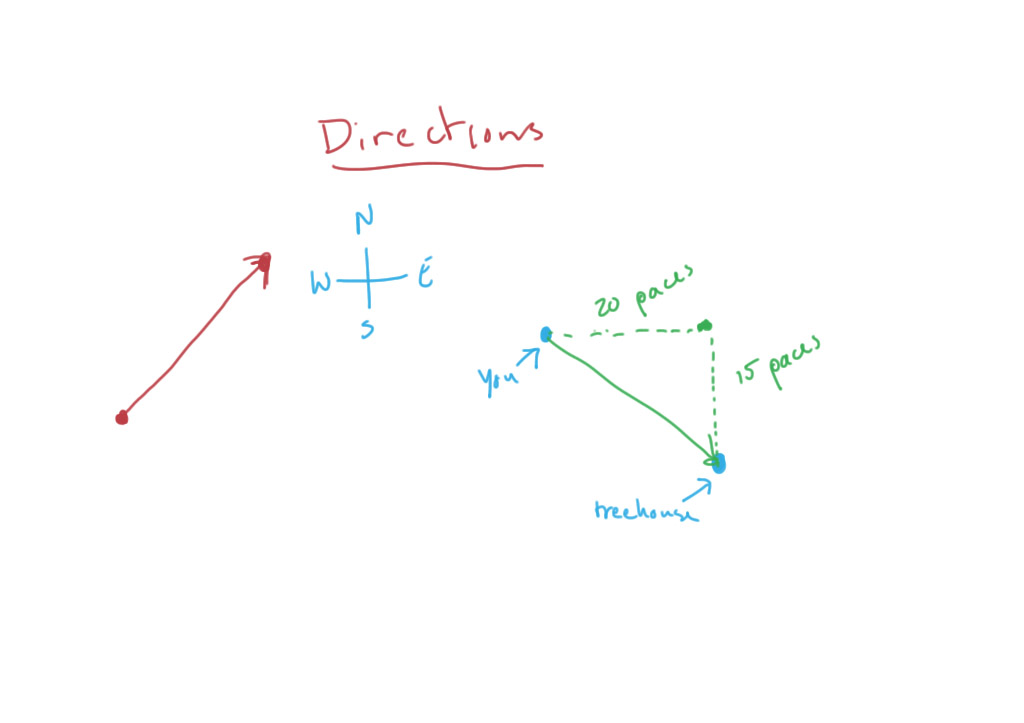 Directions
N
W E
S
20 paces
15 paces
You
treehouse